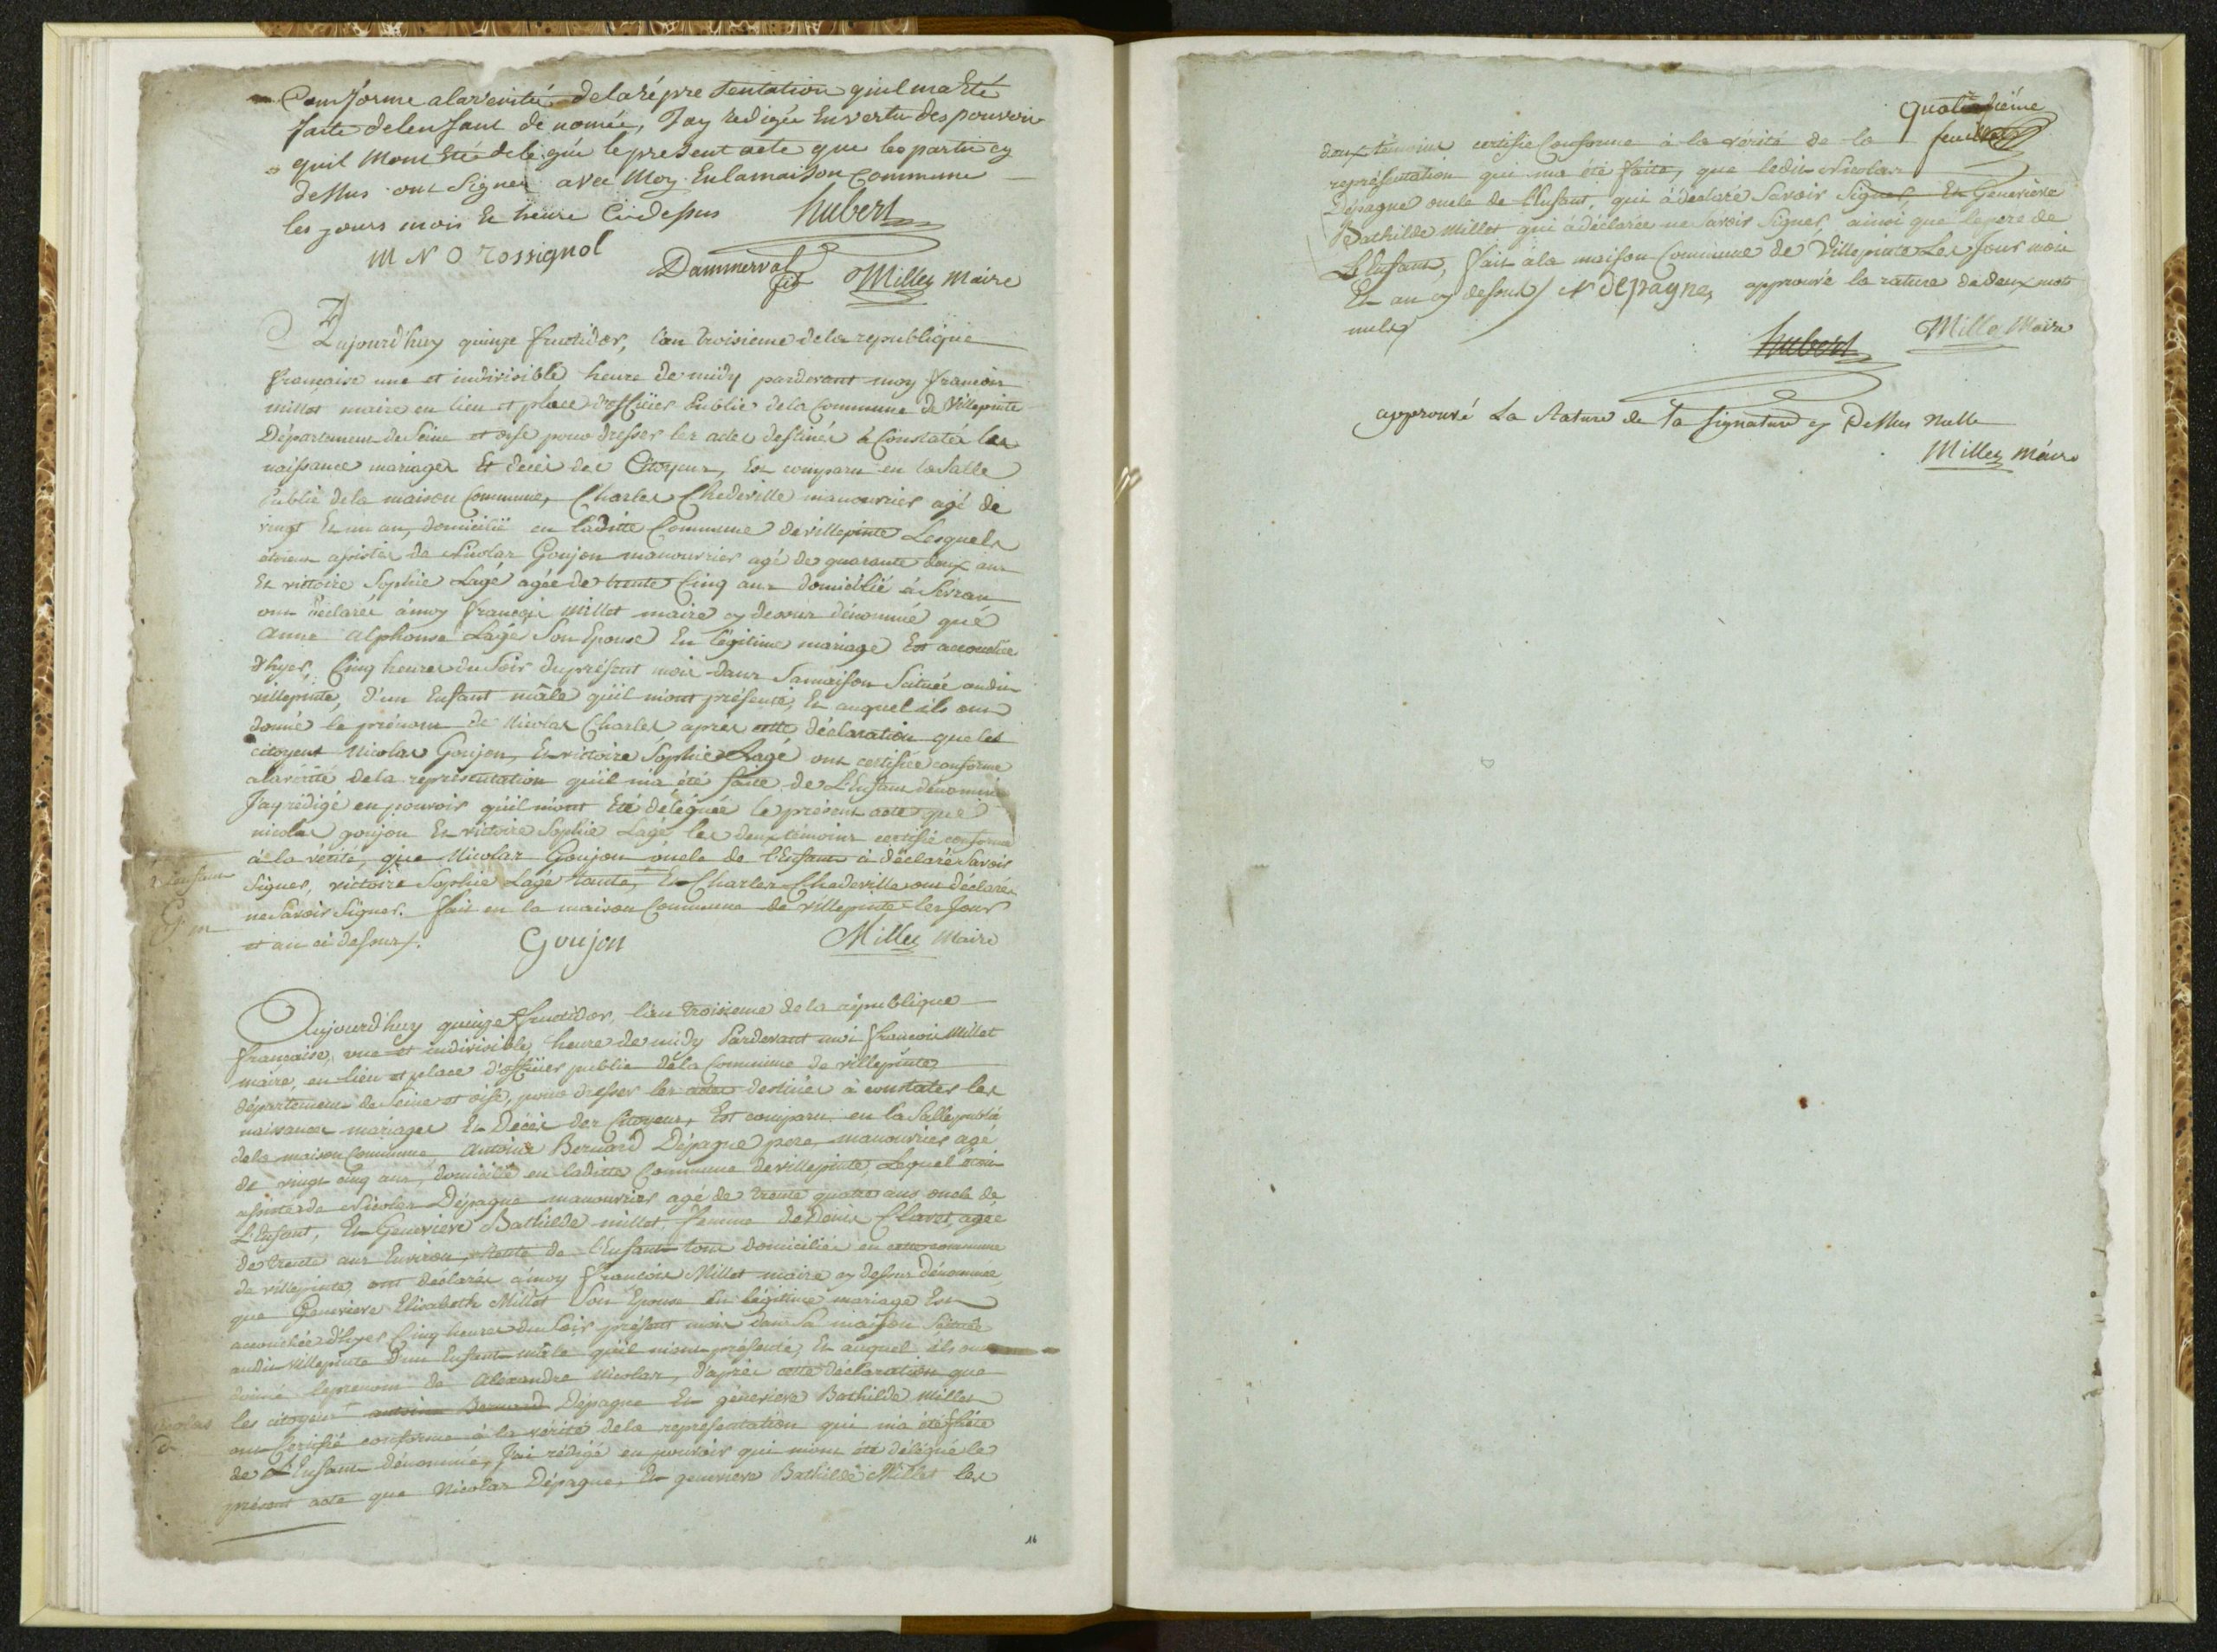 Conforme alaveritée delarépresentation quil ma Eté
faite delenfant dé nomée, Jay redigée Envertu des pouvoir
quil Mont Eté délégue leprésent acte que les partie cy
dessus ont Signer avec Moy Enlamaison Commune
les jours mois Et heure Ci dessus hubert
M N O rossignol
Dammerval
Millet Maire
Aujourd'huy quinze fructidor, l'an troisieme dela republique
française une et indivisible heure de midy pardevant moy françois
millet maire en lieu et place d'officier Public dela Commune de Villepinte
Département de Seine et oise pour dresser les actes destinés à Constaté les
naissance mariages Et décès des Citoyens, Est comparu en la Salle
Public dela maison Commune, Charles Chedeville manouvrier agé de
vingt Et un an, domicilié en laditte Commune de villepinte Lesquels
étoient assistés de Nicolas Goujon manouvrier agé de quarante deux ans
Et victoire Sophie Lagé agée de trente Cinq ans domicilié à Sévran
ont déclarée à moy françois Millet maire cy dessus dénommé qué
anne alphonse Lagé Son Epouse En légitime mariage Est accouchée
d'hyer, Cinq heures du Soir du présent mois dans Samaison Scituée audit
villepinte, d'un Enfant mâle qu'il m'ont présenté, Et auquel ils ont
donné le prénom de Nicolas Charles après cette déclaration que les
citoyens Nicolas Goujon, Et victoire Sophie Lagé ont certifiée conforme
alavérité dela représentation qu'il m'a été faite de L'Enfant dénommé
J'ay rédigé en pouvoir qu'il m'ont Eté déléguée le présent acte que
nicolas goujon Et victoire Sophie Lagé les deux témoins certifié conforme
à la vérité, que Nicolas Goujon oncle de l'Enfant à déclaré Savoir
Signer, victoire Sophie Lagé tante, Et Charles Chedeville ont déclarés
de l'enfant
G m
ne Savoir Signer. fait en la maison Commune de villepinte les Jour
et an ci dessus.
Goujon
Millet Maire
Aujourd'huy quinze fructidor, l'an troisieme de la république
française, une et indivisible, heure de midy Pardevant moi françois Millet
maire, en lieu et place d'officier public dela Commune de villepinte
département de Seine et oise, pour dresser les actes destinés à constater les
naissances mariages Et Décès des Citoyens, Est comparu en la Salle public
dela maison Commune, Antoine Bernard Dépagne pere, manouvrier agé
de vingt cinq ans, domicilié en laditte Commune de villepinte, Lequel étoit
assisté de Nicolas Dépagne manouvrier agé de trente quatre ans oncle de
L'Enfant, Et Geneviève Bathilde millet, femme de Denis Clavet, agée
de trente ans Environ, tante de l'Enfant tous domiciliés en cette commune
de villepinte, ont déclarés à moy François Millet maire cy dessus dénommée,
que Geneviève Elisabeth Millet Son Epouse En légitime mariage Est
accouchée d'hyer Cinq heures du Soir présent mois dans Sa maison Scituée
audit villepinte D'un Enfant mâle qu'il m'ont présenté, Et auquel ils ont
donné leprenom de Alexandre Nicolas, d'après cette déclaration que
les citoyens antoine Bernard Dépagne Et géneviève Bathilde Millet
nicolas
ont Certifié conforme à la vérité dela représentation qui m'a été faite
de L'Enfant dénommé, J'ai rédigé en pouvoir qui m'ont été délégué le
présent acte que Nicolas Dépagne, Et geneviève Bathilde Millet les
16
quatorzième
feuillet
deux témoins certifié Conforme à la vérité de la
représentation qui ma été faite, que ledit Nicolas
Dépagne oncle de l'Enfant, qui à déclaré Savoir Signer, Et Geneviève
Bathilde Millet qui à déclarée ne Savoir Signer, ainsi que le pere de
L'Enfant, fait à la maison Commune de Villepinte Les Jour mois
Et an cy dessus N dépagne, approuvé la rature de deux mots
nuls
hubert
Millet Maire
approuvé La Rature de la signature cy Dessus Nulle
Millet Maire